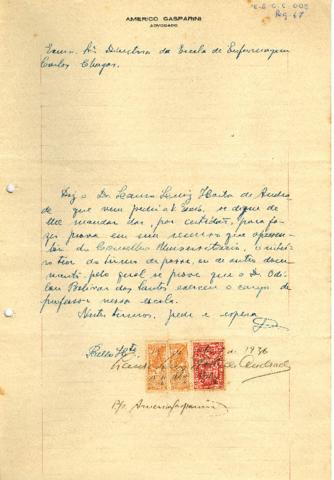 AMERICO GASPARINI
ADVOGADO
Pag. 67
Exma. Sra. Directora da Escola de Enfermagem
Carlos Chagas.
Diz o Dr. Lauro Horta de Andra
de que vem pedir a V. Excia. se digne de
lhe mandar dar, por certidão, para fa-
zer prova em um recurso que apresen-
tar ao Conselho Universitario, o inteiro
teor do termo de posse, ou de outro docu-
mento pelo qual se prove que o Dr. Odi-
lon Bolivar dos Santos, exerceu o cargo de
professor nessa escola.
Nestes termos, pede e espera
Bello Hte de 1936
Andrade
P/p. Americo Gasparini